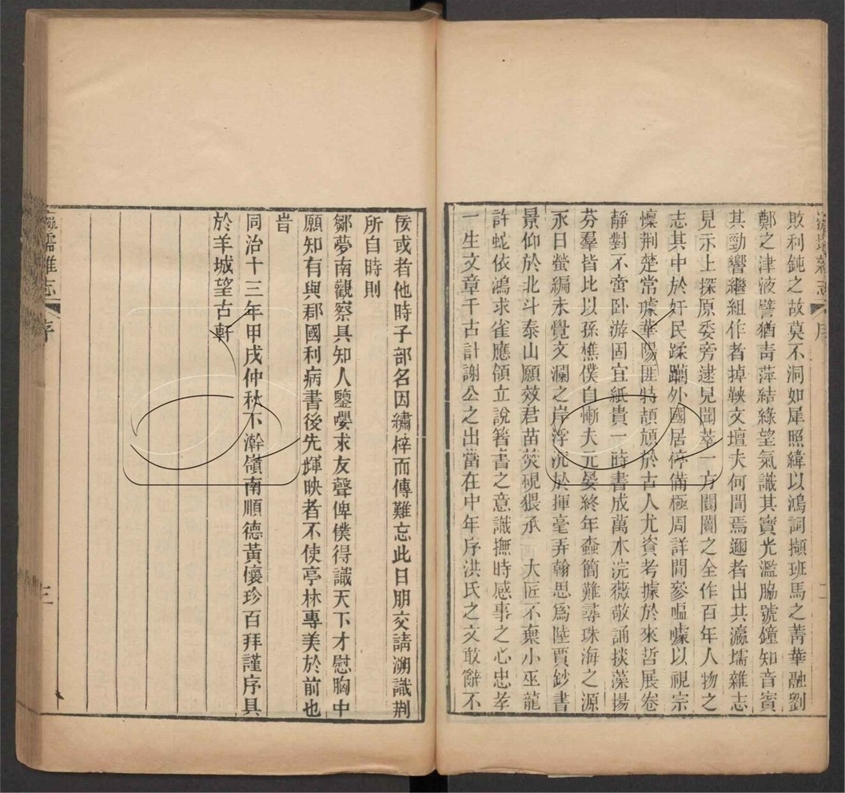 敗利鈍之故莫不洞如犀照緯以鴻詞擷班馬之菁華融劉
鄭之津液譬猶青萍結綠望氣識其寶光濫脇號鐘知音賓
其勁響繼組作者掉鞅文壇夫何間焉邇者出共瀛壖雜志
見示上探原委旁逮見聞萃一方闤闠之全作百年人物之
志其中於奸民蹂躪外國居停備極周詳間參嘔噱以視宗
懍荆楚常璩華陽匪特頡頏於古人尤資考據於來哲展卷
靜對不啻卧游固宜紙貴一時書成萬木浣薇敬誦掞藻揚
芬羣皆比以孫樵僕自慚夫元晏終年蠹簡難尋珠海之源
永日螢編未覺文瀾之岸浮沉於揮毫弄翰思爲陸賈鈔書
景仰於北斗泰山願效君苗焚硯猥承 大匠不棄小巫龍
許蛇依鴻求雀應領立說箸書之意識撫時感事之心忠孝
一生文章千古計謝公之出當在中年序洪氏之文敢辭不
序
二
佞或者他時子部名因繡梓而傳難忘此日朋交請溯識荆
所自時則
鄒夢南觀察具知人鑒嚶求友聲俾僕得識天下才慰胸中
願知有與郡國利病書後先輝映者不使亭林專美於前也
旹
同治十三年甲戌仲秋不澣嶺南順德黃懷珍百拜謹序具
於羊城望古軒
瀛壖雜志
序
三